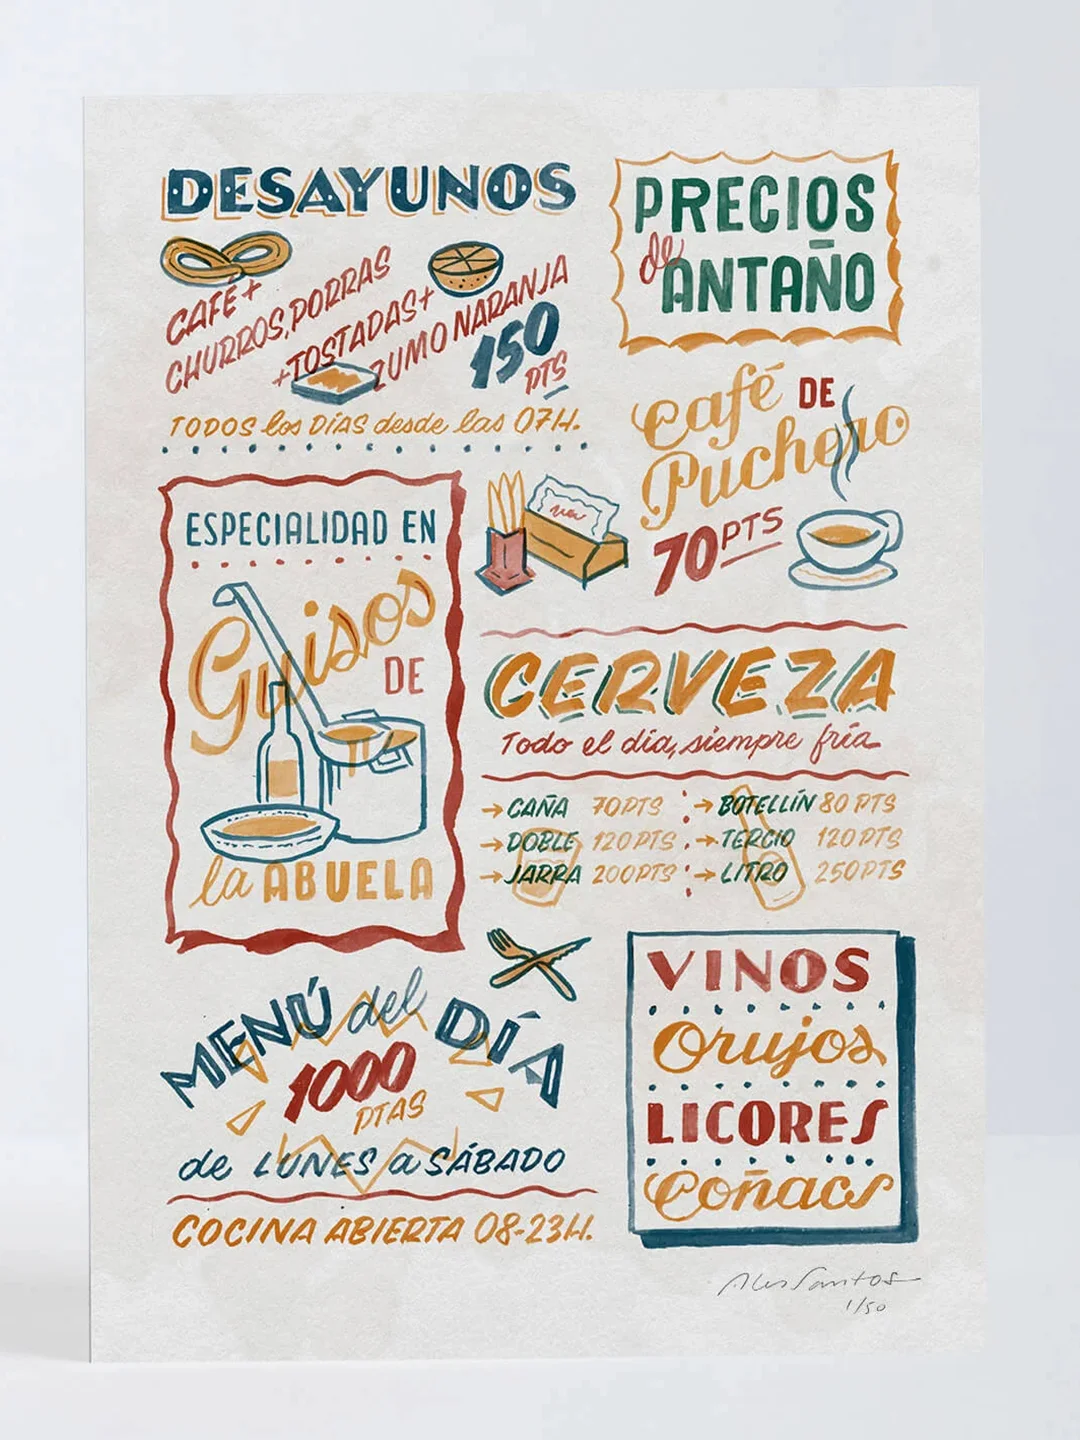 DESAYUNOS
CAFÉ+
CHURROS, PORRAS
+TOSTADAS+
ZUMO NARANJA
150
PTS
TODOS los DÍAS desde las 07H.
PRECIOS
de
ANTAÑO
Café DE
Puchero
70 PTS
ESPECIALIDAD EN
Guisos
DE
la ABUELA
CERVEZA
Todo el día, siempre fría
→ CAÑA 70 PTS
→ DOBLE 120 PTS
→ JARRA 200 PTS
→ BOTELLÍN 80 PTS
→ TERCIO 120 PTS
→ LITRO 250 PTS
MENÚ del DÍA
1000
PTAS
de LUNES a SÁBADO
COCINA ABIERTA 08-23H.
VINOS
Orujos
LICORES
Coñacs
Alex Santos
1/50